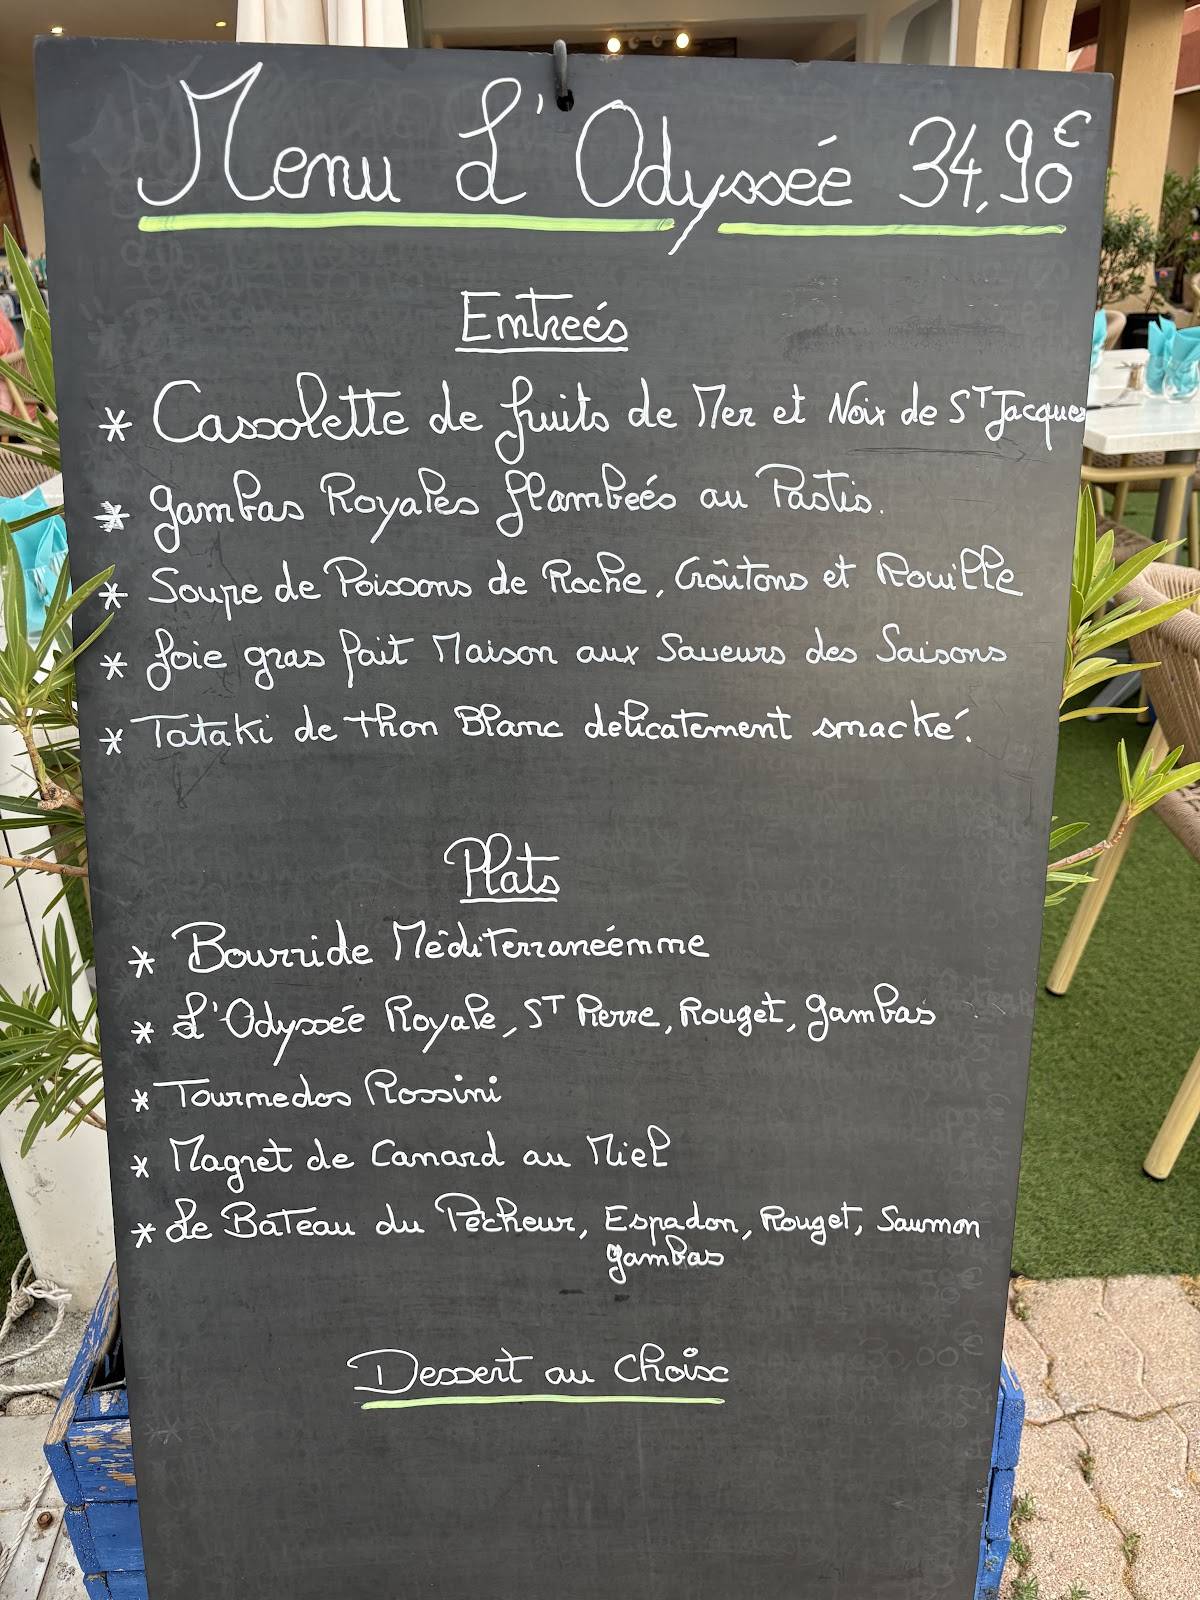 Menu L'Odyssée 34,90€
Entreés
* Cassolette de fruits de Mer et Noix de ST Jacques
* Gambas Royales flambeés au Pastis.
* Soupe de Poissons de Roche, Croûtons et Rouille
* foie gras fait Maison aux Saveurs des Saisons
* Tataki de thon Blanc delicatement smacké.
Plats
* Bourride Méditerraneénne
* L'Odyssée Royale, ST Pierre, Rouget, Gambas
* Tournedos Rossini
* Magret de Canard au Miel
* Le Bateau du Pêcheur, Espadon, Rouget, Saumon
gambas
Dessert au Choix